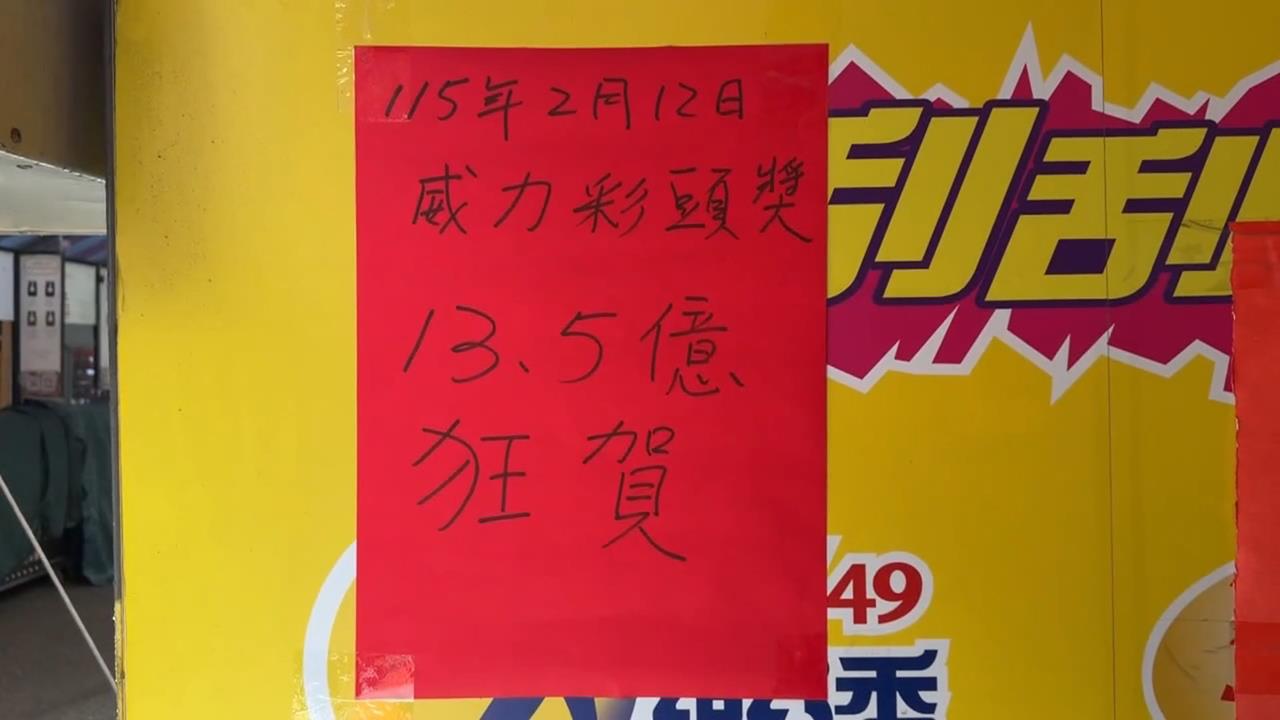 115年2月12日
威力彩頭獎
13、5億
狂賀
刮刮
49